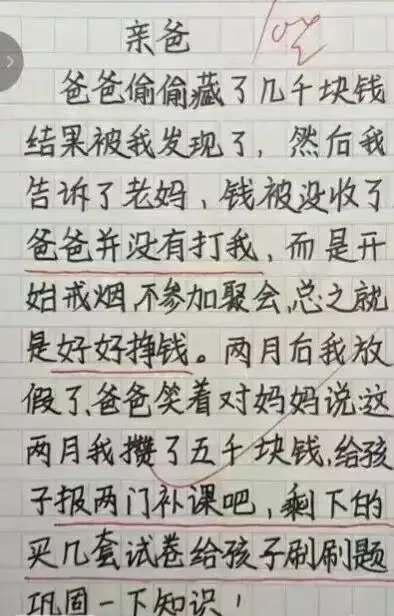 亲爸
爸爸偷偷藏了几千块钱
结果被我发现了，然后我
告诉了老妈，钱被没收了
爸爸并没有打我，而是开
始戒烟，不参加聚会，总之就
是好好挣钱。两月后我放
假了，爸爸笑着对妈妈说：这
两月我攒了五千块钱，给孩
子报两门补课吧，剩下的
买几套试卷给孩子刷刷题
巩固一下知识！